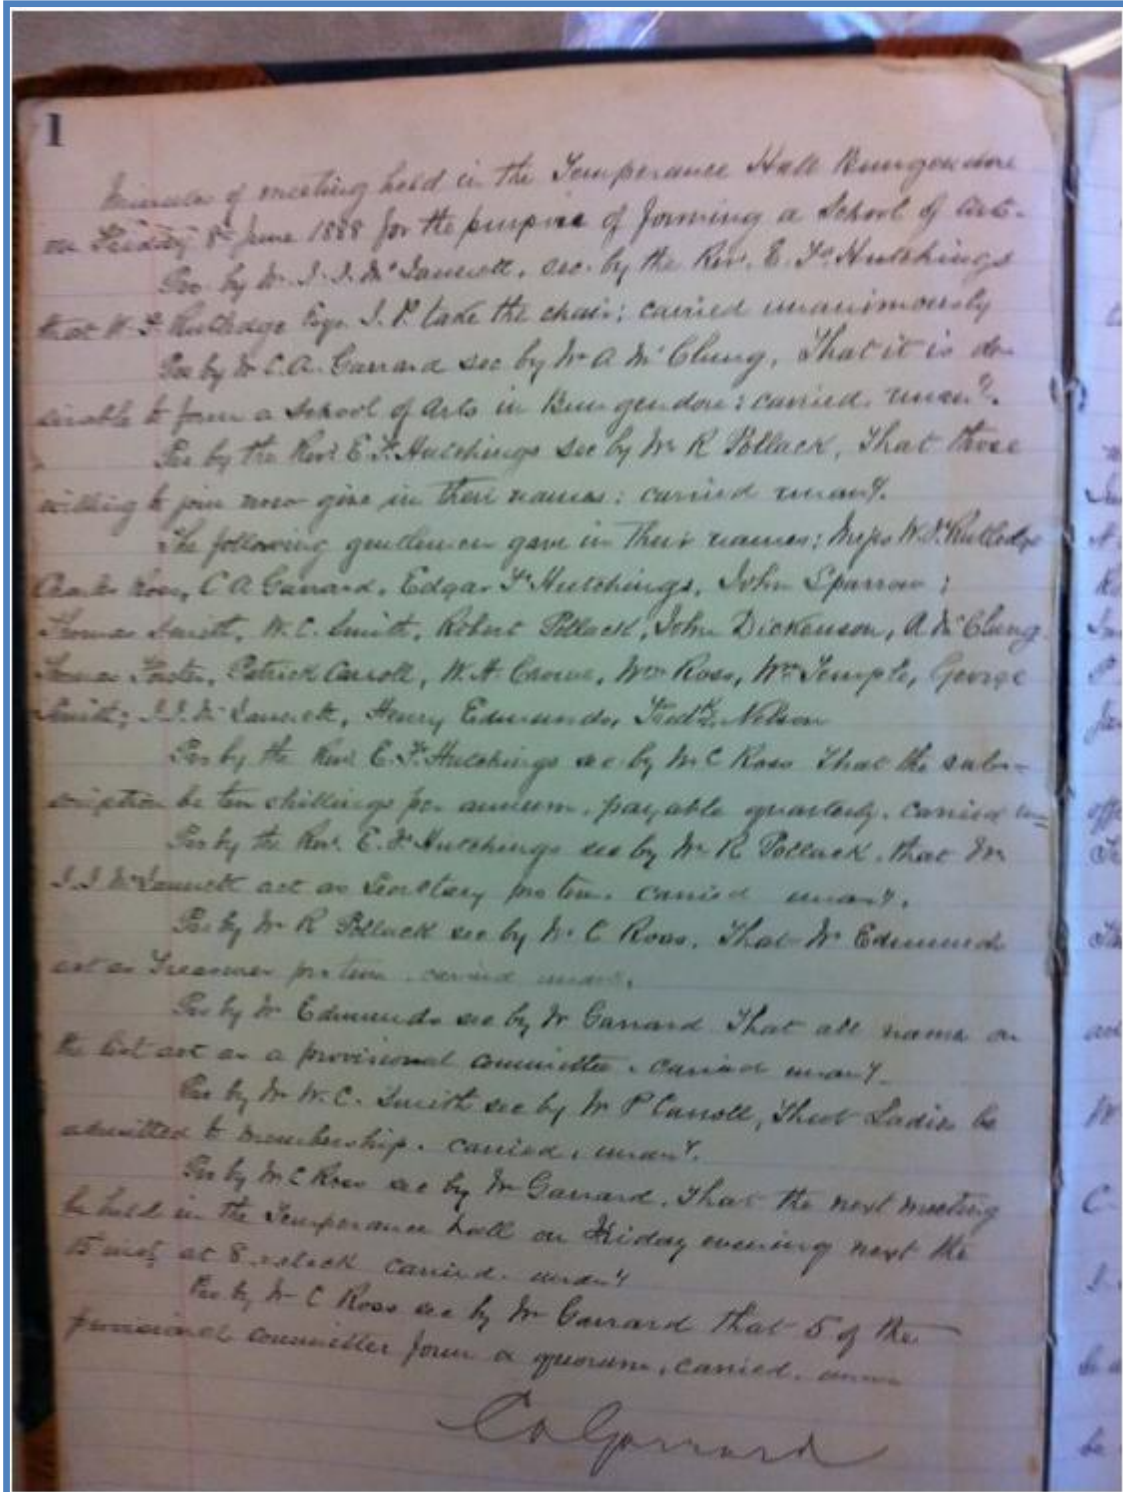 1
Minutes of meeting held in the Temperance Hall Bungendore
on Friday 8th June 1888 for the purpose of forming a School of Arts.
Pro. by Mr. J. J. Mc sec. by the Rev. E. F. Hutchings
that W. F. Rutledge Esqr. J. P. take the chair; carried unanimously
Pro by Mr C. A. Garrard sec by Mr A McClung, That it is de-
sirable to form a School of Arts in Bungendore; carried. unany.
Pro by the Revd. E. F. Hutchings sec by Mr R Pollack, That those
willing to join now give in their names: carried unany.
The following gentlemen gave in their names; Messrs W. F. Rutledge
Charles Ross, C A Garrard, Edgar F. Hutchings, John Sparrow;
Thomas Smith, W. C. Smith, Robert Pollack, John Dickenson, A. McClung
Thomas Foster, Patrick Carroll, W. H. Wm Ross, Wm Temple, George
Smith; J. J. Mc Henry Edmunds, Fredk. Nelson
Pro by the Revd. E. F. Hutchings sec by Mr C Ross That the subs-
cription be ten shillings per annum, payable quarterly. carried un
Pro by the Rev. E. F. Hutchings sec by Mr R Pollack. that Mr
J. J. Mc act as Secretary pro tem. carried unany.
Pro by Mr R Pollack sec by Mr C Ross. That Mr Edmunds
act as Treasurer pro tem. carried unany.
Pro by Mr Edmunds sec by Mr Garrard That all names on
the list act as a provisional committee. carried unany.
Pro by Mr W. C. Smith sec by Mr P Carroll, That Ladies be
admitted to membership. carried, unany.
Pro by Mr C Ross sec by Mr Garrard. That the next meeting
be held in the Temperance hall on Friday evening next the
15 inst, at 8 o'clock carried. unany
Pro by Mr C Ross sec by Mr Garrard that 5 of the
provisional committee form a quorum, carried.
C A Garrard